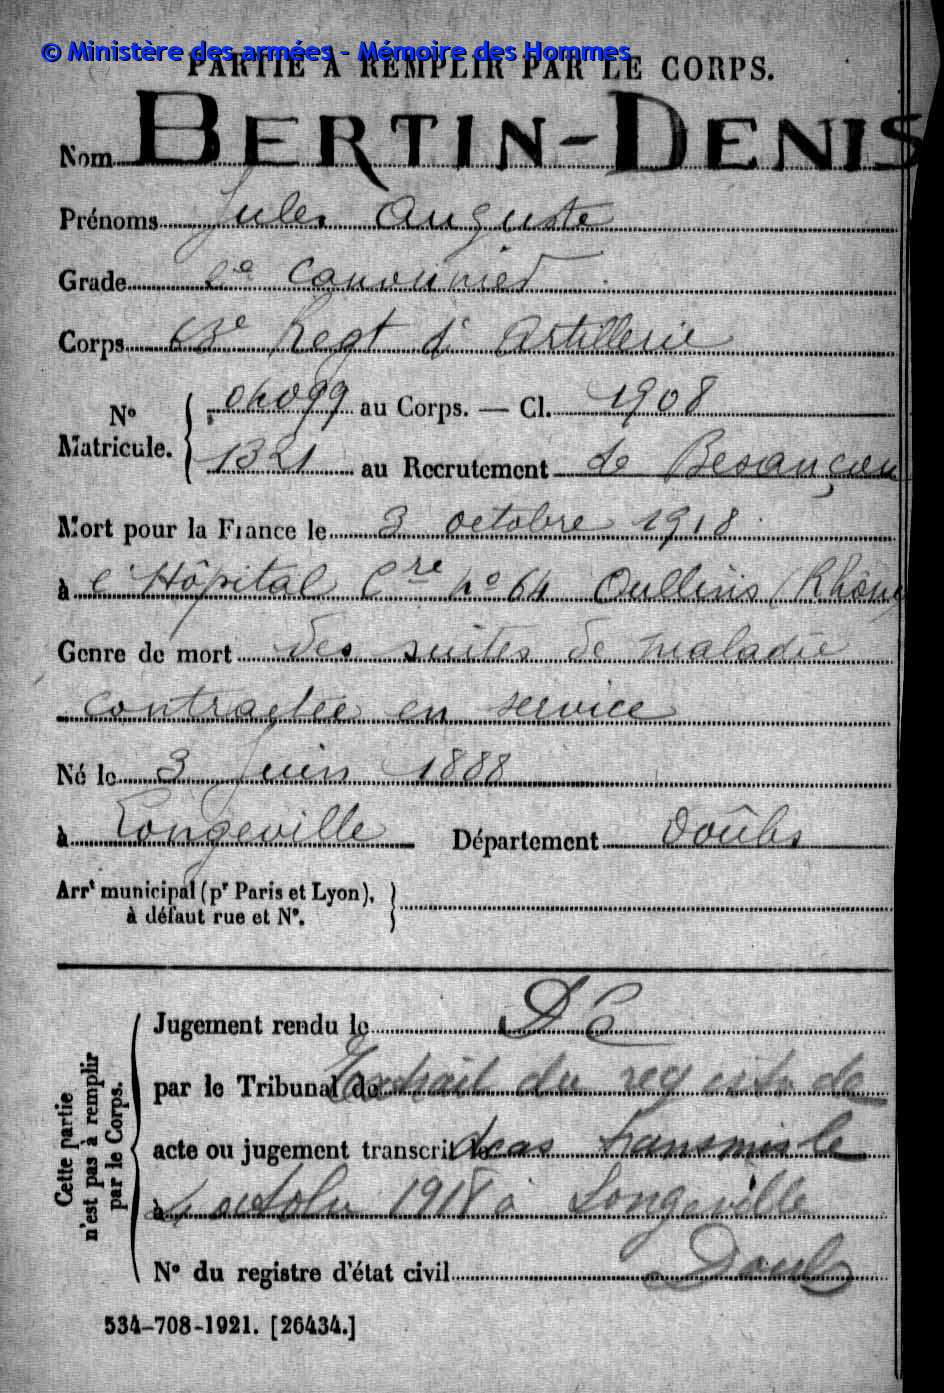 © Ministère des armées - Mémoire des Hommes
PARTIE A REMPLIR PAR LE CORPS.
Nom BERTIN-DENIS
Prénoms Jules Auguste
Grade 2e canonnier
Corps 63e Regt d'Artillerie
No Matricule. 04099 au Corps. — Cl. 1908
1321 au Recrutement de Besançon
Mort pour la France le 3 octobre 1918
à l'Hôpital Cre no 64 Oullins (Rhône)
Genre de mort des suites de maladie
contractée en service
Né le 3 Juin 1888
à Longeville Département Doubs
Arrt municipal (pr Paris et Lyon),
à défaut rue et No.
Cette partie
n'est pas à remplir
par le Corps.
Jugement rendu le DC
par le Tribunal de Extrait du registre de
acte ou jugement transcrit le décès transmis le
à 4 octobre 1918 à Longeville
No du registre d'état civil Doubs
534-708-1921. [26434.]